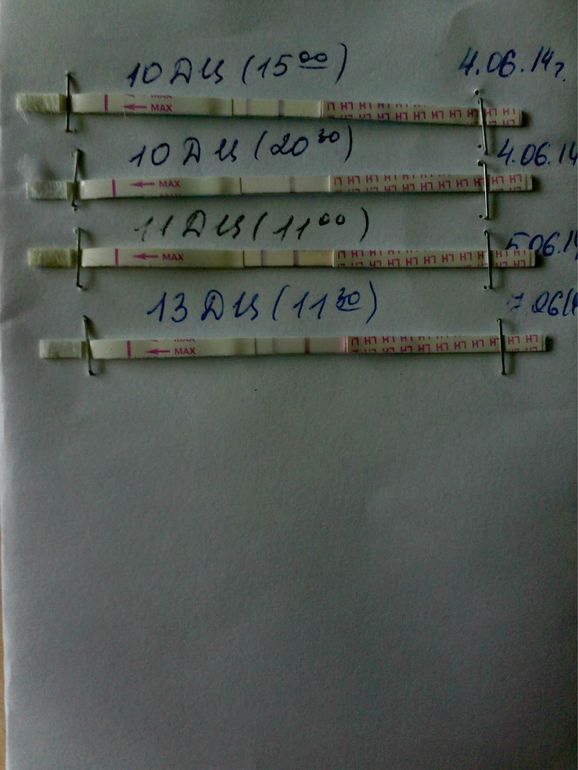 10 ДЦ (15 00) 4.06.14г.
MAX
MAX
LH LH LH LH LH LH LH LH
10 ДЦ (20 30) 4.06.14
MAX
LH LH LH LH LH LH LH LH
11 ДЦ (11 00) 5.06.14
MAX
LH LH LH LH LH LH LH LH
13 ДЦ (11 30)
MAX
MAX
LH LH LH LH LH LH LH LH